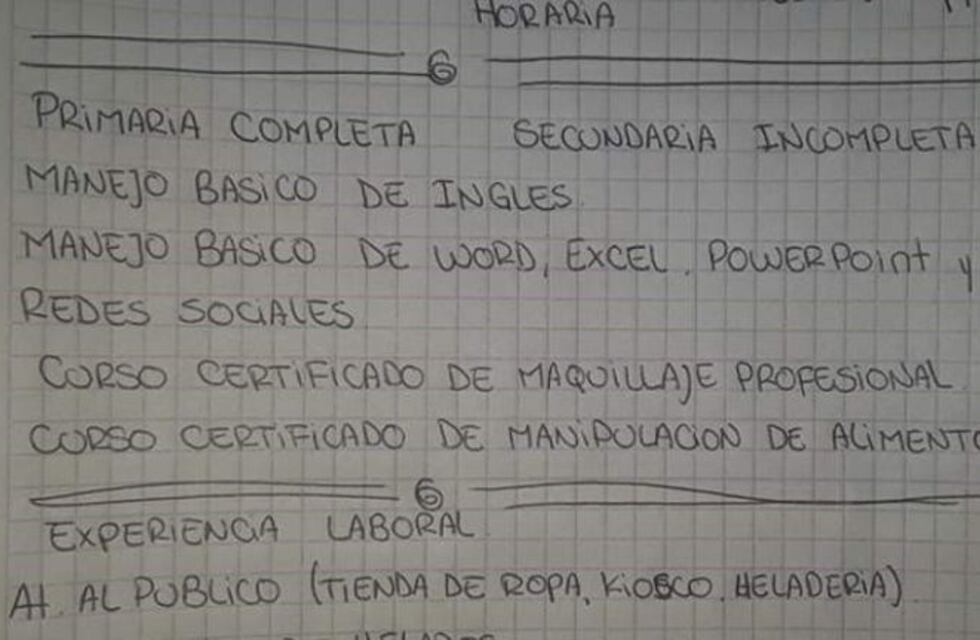 HORARIA
6
PRIMARIA COMPLETA SECUNDARIA INCOMPLETA
MANEJO BASICO DE INGLES
MANEJO BASICO DE WORD, EXCEL, POWERPOINT y
REDES SOCIALES
CURSO CERTIFICADO DE MAQUILLAJE PROFESIONAL
CURSO CERTIFICADO DE MANIPULACION DE ALIMENTO
6
EXPERIENCIA LABORAL
At. AL PUBLICO (TIENDA DE ROPA, KIOSCO, HELADERIA)